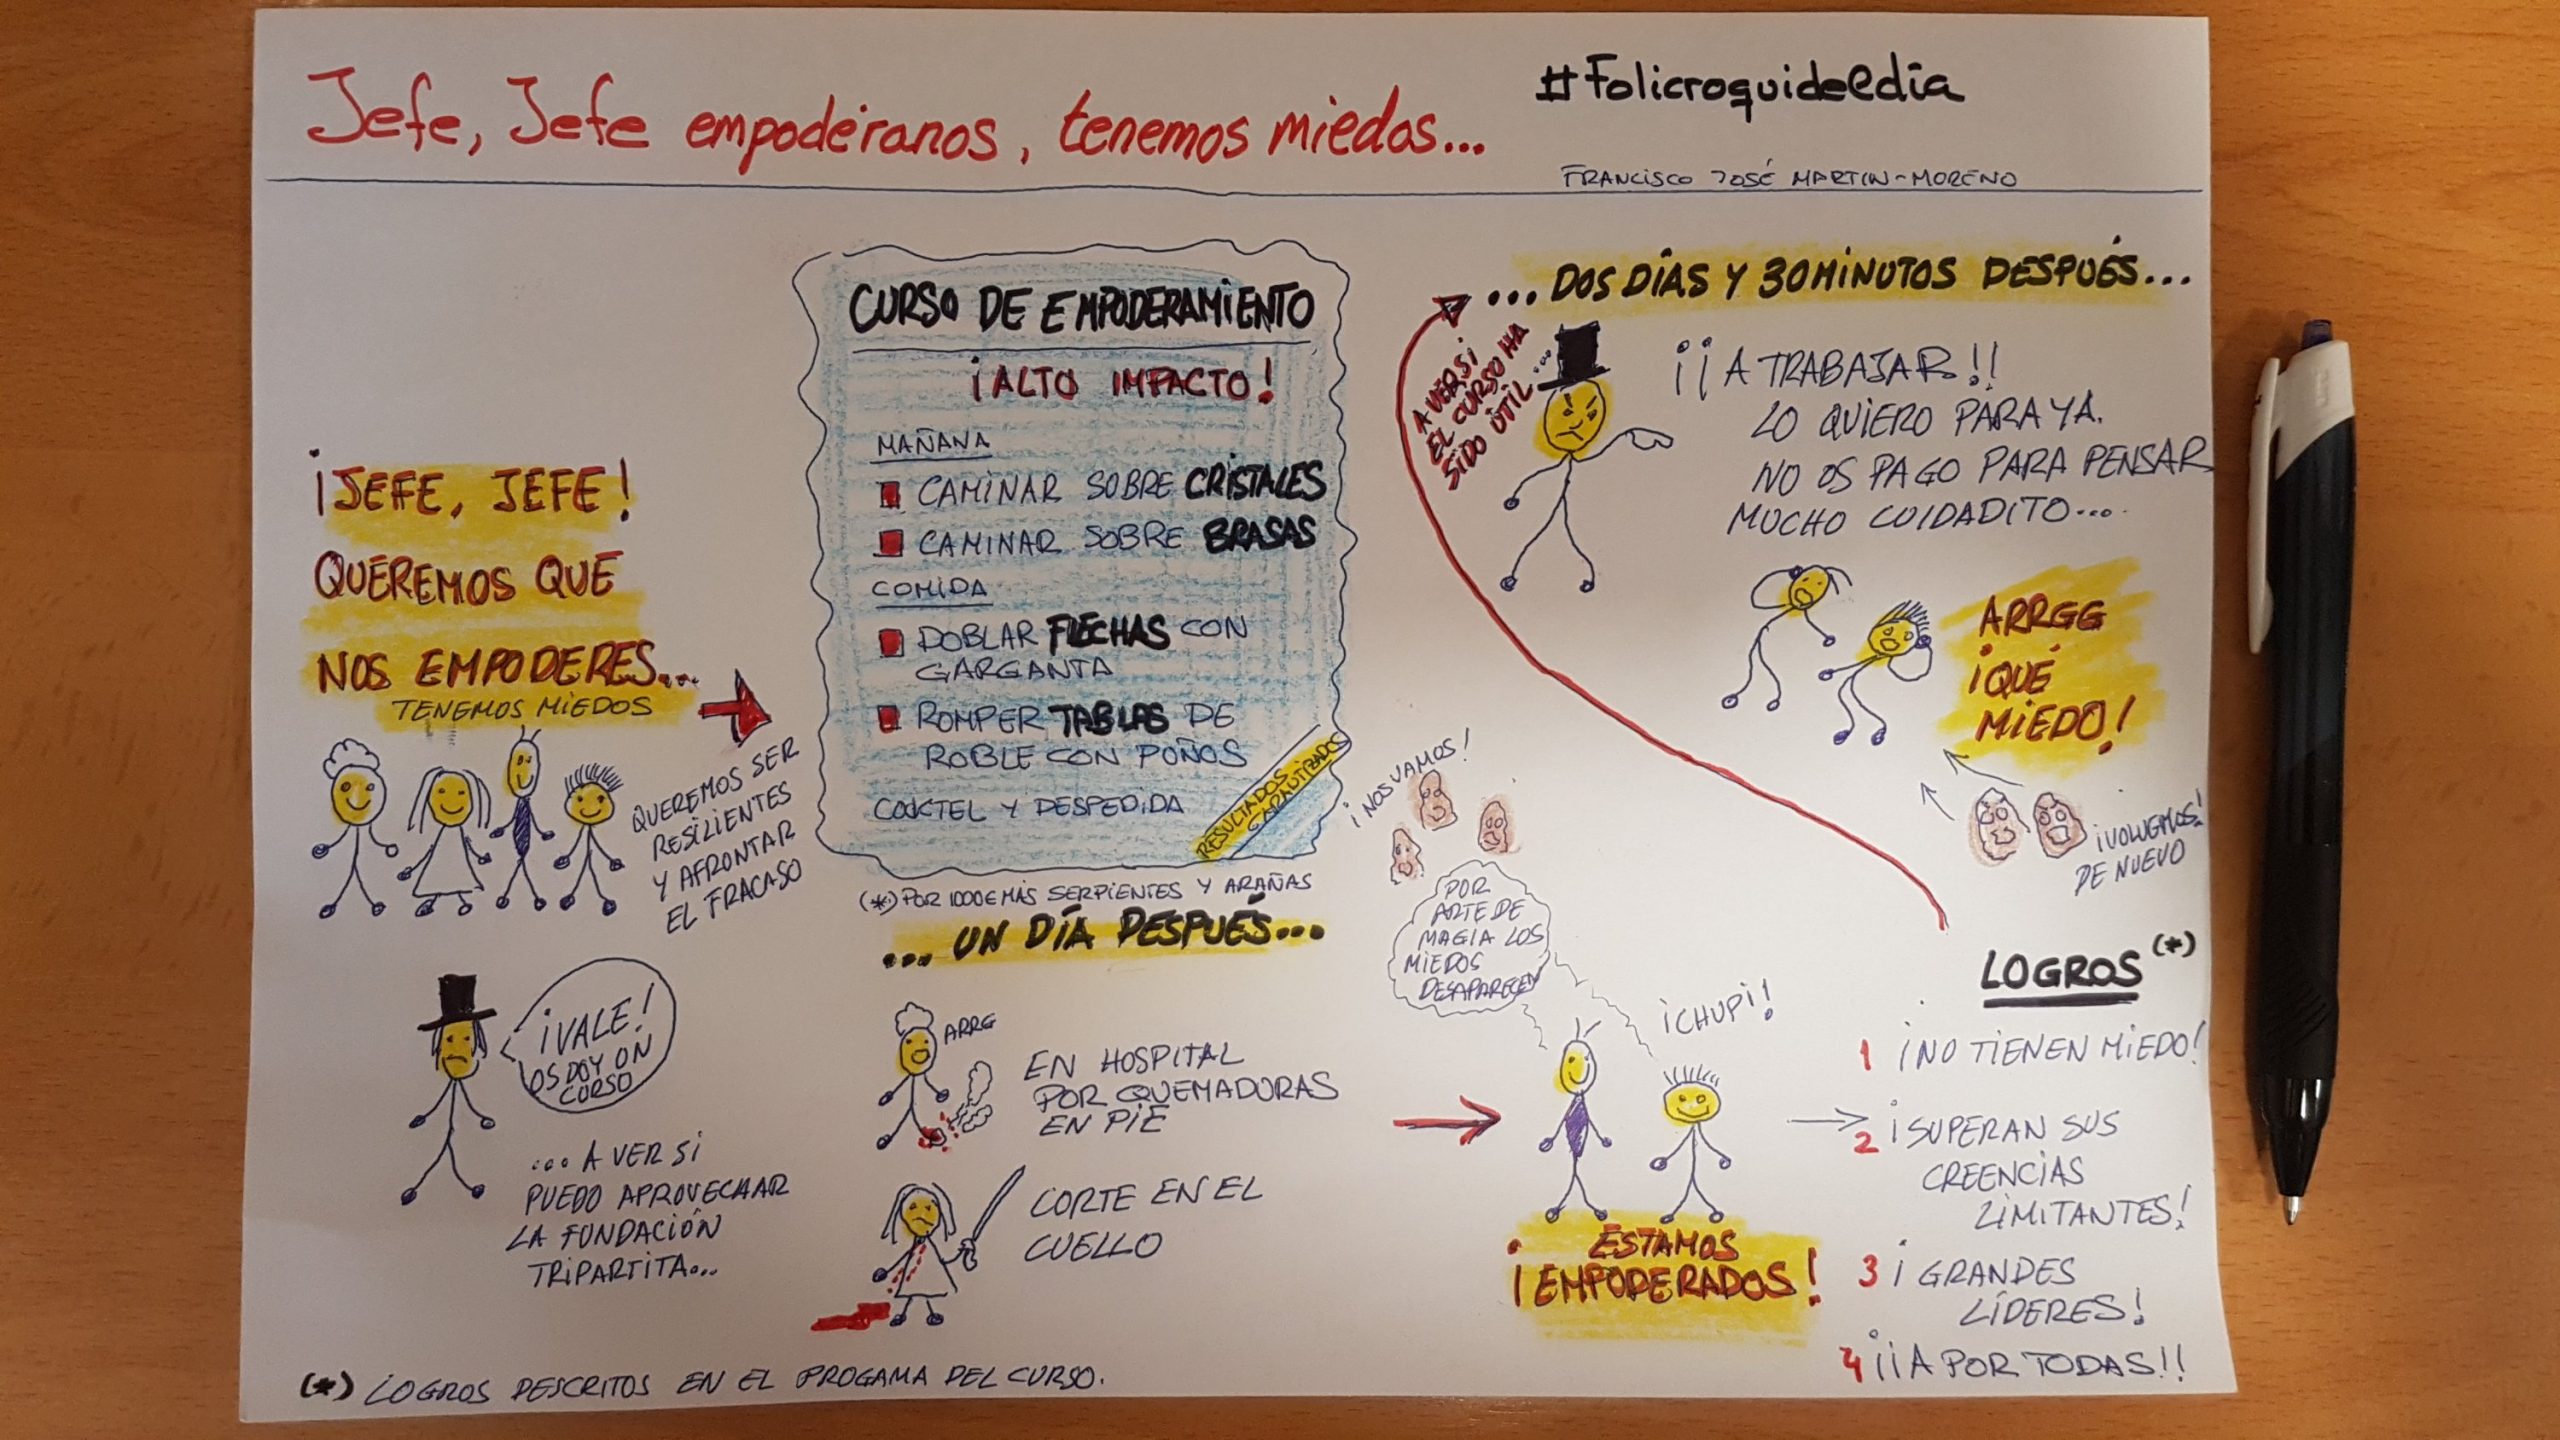 Jefe, Jefe empodéranos, tenemos miedos...
#Folicroquideldía
FRANCISCO JOSÉ MARTIN-MORENO
¡JEFE, JEFE!
QUEREMOS QUE
NOS EMPODERES...
TENEMOS MIEDOS
QUEREMOS SER
RESILIENTES
Y AFRONTAR
EL FRACASO
¡VALE!
OS DOY UN
CURSO
... A VER SI
PUEDO APROVECHAR
LA FUNDACIÓN
TRIPARTITA...
CURSO DE EMPODERAMIENTO
¡ALTO IMPACTO!
MAÑANA
CAMINAR SOBRE CRISTALES
CAMINAR SOBRE BRASAS
COMIDA
DOBLAR FLECHAS CON
GARGANTA
ROMPER TABLAS DE
ROBLE CON PUÑOS
COCKTEL Y DESPEDIDA
RESULTADOS
GARANTIZADOS
(*) POR 1000€ MÁS SERPIENTES Y ARAÑAS
... UN DÍA DESPUÉS...
ARRG
EN HOSPITAL
POR QUEMADURAS
EN PIE
CORTE EN EL
CUELLO
¡NOS VAMOS!
POR
ARTE DE
MAGIA LOS
MIEDOS
DESAPARECEN
¡CHUPI!
ESTAMOS
¡EMPODERADOS!
LOGROS (*)
1 ¡NO TIENEN MIEDO!
2 ¡SUPERAN SUS
CREENCIAS
LIMITANTES!
3 ¡GRANDES
LÍDERES!
4 ¡¡A POR TODAS!!
A VER SI
EL CURSO HA
SIDO ÚTIL...
... DOS DÍAS Y 30 MINUTOS DESPUÉS...
¡¡A TRABAJAR!!
LO QUIERO PARA YA.
NO OS PAGO PARA PENSAR
MUCHO CUIDADITO...
ARRGG
¡QUÉ
MIEDO!
¡VOLVEMOS!
DE NUEVO
(*) LOGROS DESCRITOS EN EL PROGAMA DEL CURSO.